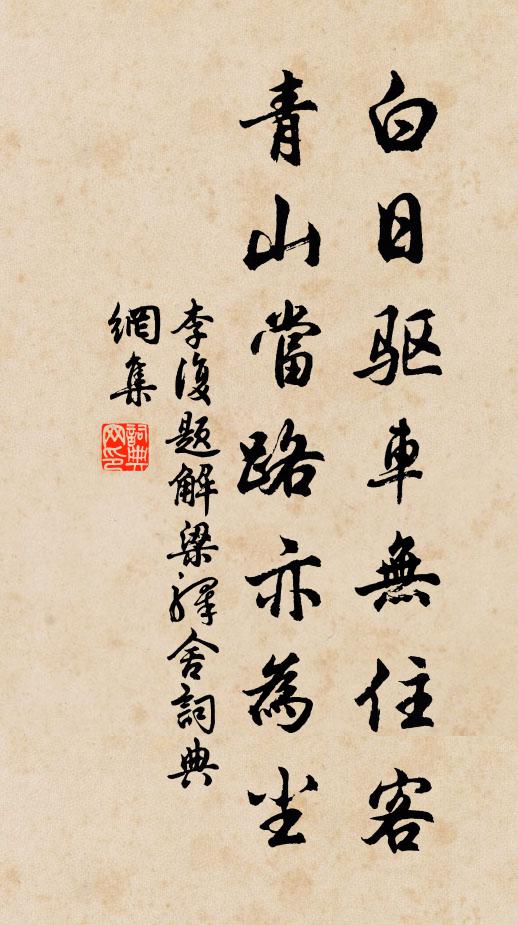 白日驱車無住客
青山當路亦為尘
李復题解梁驛舍詞典
網集
詞典
网印